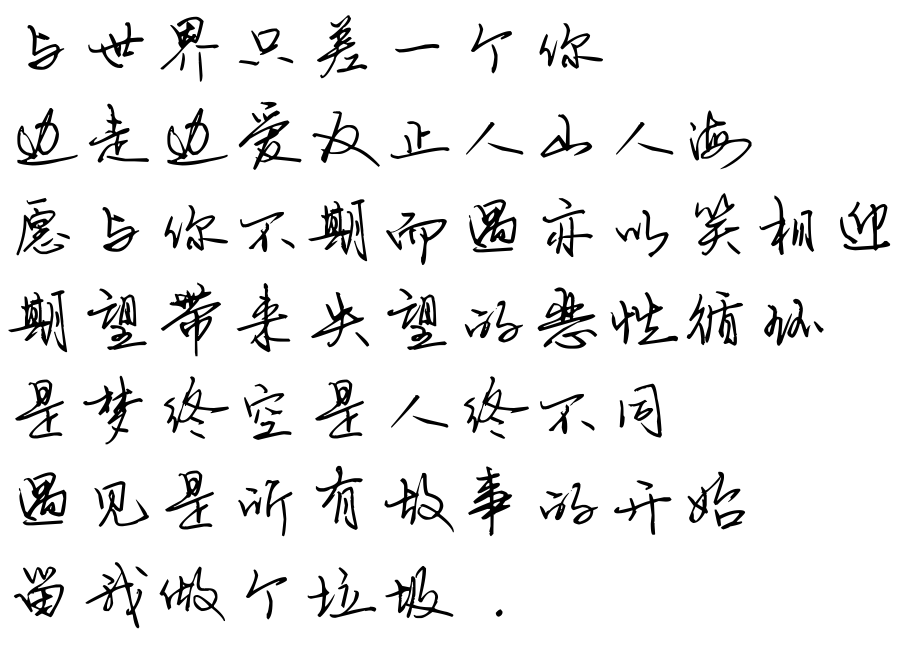 与世界只差一个你
边走边爱反正人山人海
愿与你不期而遇亦以笑相迎
期望带来失望的恶性循环
是梦终空是人终不同
遇见是所有故事的开始
留我做个垃圾.